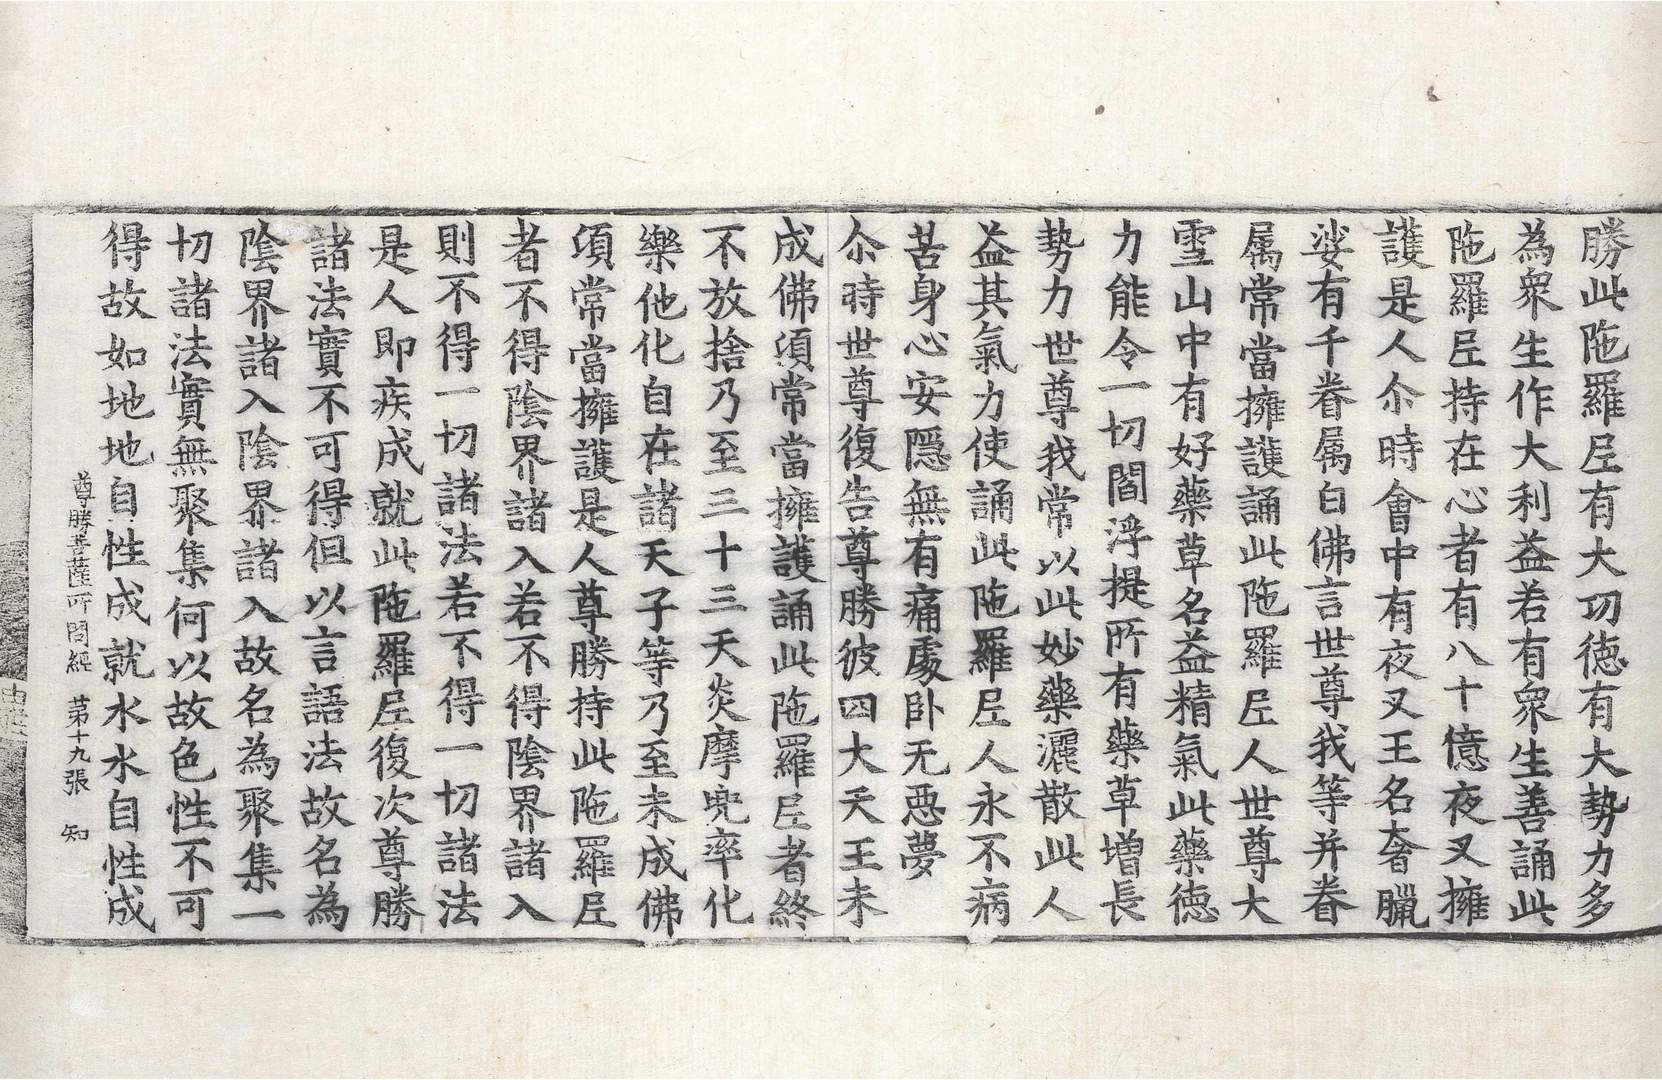 勝此陁羅𡰱有大㓛徳有大㔟力多
為衆生作大利益若有衆生善誦此
陁羅𡰱持在心者有八十億夜叉擁
護是人尒時會中有夜叉王名奢臘
娑有千眷属白佛言世尊我等并眷
属常當擁護誦此陁羅𡰱人世尊大
雪山中有好藥草名益精氣此藥徳
力能令一切閻浮提所有藥草增長
勢力世尊我常以此妙藥灑散此人
益其氣力使誦此陁羅𡰱人永不病
苦身心安隱無有痛處卧无惡夢
尒時世尊復告尊勝彼四大天王未
成佛須常當擁護誦此陁羅𡰱者終
不放捨乃至三十三天炎摩兜率化
樂他化自在諸天子等乃至未成佛
須常當擁護是人尊勝持此陁羅𡰱
者不得陰界諸入若不得陰界諸入
則不得一切諸法若不得一切諸法
是人即疾成就此陁羅𡰱復次尊勝
諸法實不可得但以言語法故名為
陰界諸入陰界諸入故名為聚集一
切諸法實無聚集何以故色性不可
得故如地地自性成就水水自性成
尊勝菩薩所問經 苐十九張 知